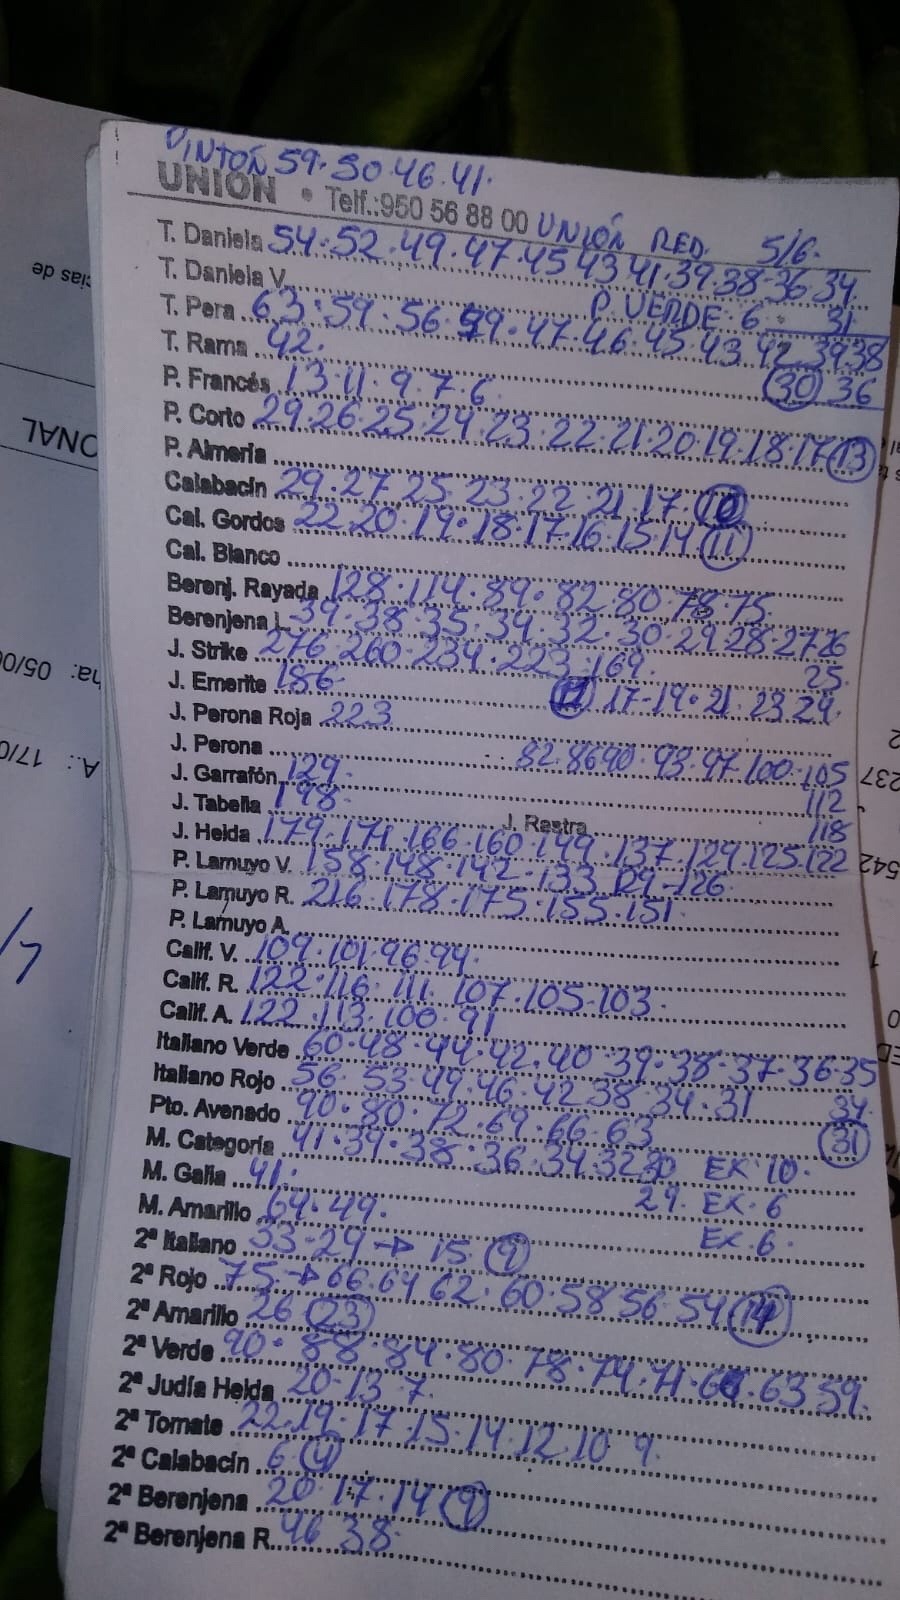 PINTÓN 59·50·46·41·
UNIÓN • Telf.:950 56 88 00 UNIÓN RED. 5/6·
T. Daniela 54·52·49·47·45 43 41·39·38·36·34
T. Daniela V. P. VERDE 6 31
T. Pera 63·59·56 49·47·46·45·43·42 39 38
T. Rama 42· (30) 36
P. Francés 13·11·9·7·6
P. Corto 29·26·25·24·23·22·21·20·19·18·17 (13)
P. Almería
Calabacín 29·27 25·23·22·21·17 (10)
Cal. Gordos 22 20·19·18·17·16·15·14 (11)
Cal. Blanco
Berenj. Rayada 128·114·89·82 80·78·75
Berenjena L. 39·38·35·34·32·30·29 28·27 26
J. Strike 276·260·234·223·169· 25
J. Emerite 186· 17-19·21·23 24
J. Perona Roja 223
J. Perona 82·86 90·93·97·100·105
J. Garrafón 129· 112
J. Tabella 198· J. Rastra 118
J. Helda 179·171·166·160·149·137·129·125·122
P. Lamuyo V. 158·148·142·133 129-126·
P. Lamuyo R. 216·178·175·155·151·
P. Lamuyo A.
Calif. V. 109·101·96·94·
Calif. R. 122·116·111·107·105-103·
Calif. A. 122·113·100·91
Italiano Verde 60·48·44·42·40·39·38·37·36·35
Italiano Rojo 56·53·49·46·42 38·34·31 34
Pto. Avenado 90·80·72·69·66·63 (31)
M. Categoría 41·39·38·36·34 32 30 EX 10·
M. Galia 41· 29· EX·6
M. Amarillo 64·49· EX·6·
2ª Italiano 33-29→15 (9)
2ª Rojo 75→66 64 62·60·58 56·54 (14)
2ª Amarillo 26 (23)
2ª Verde 90·88·84·80·78·74·71· 63 59·
2ª Judía Helda 20-13·7·
2ª Tomate 22·19·17 15·14·12 10 9·
2ª Calabacín 6 (4)
2ª Berenjena 20·17·14 (9)
2ª Berenjena R. 46 38·